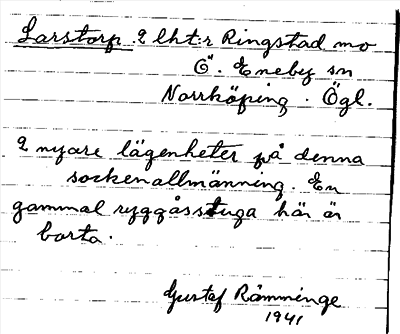 Larstorp 2 lht:r Ringstad mo
Ö. Eneby sn
Norrköping. Ögl.
2 nyare lägenheter på denna
sockenallmänning. En
gammal ryggåsstuga här är
borta.
Gustaf Rämminge
1941